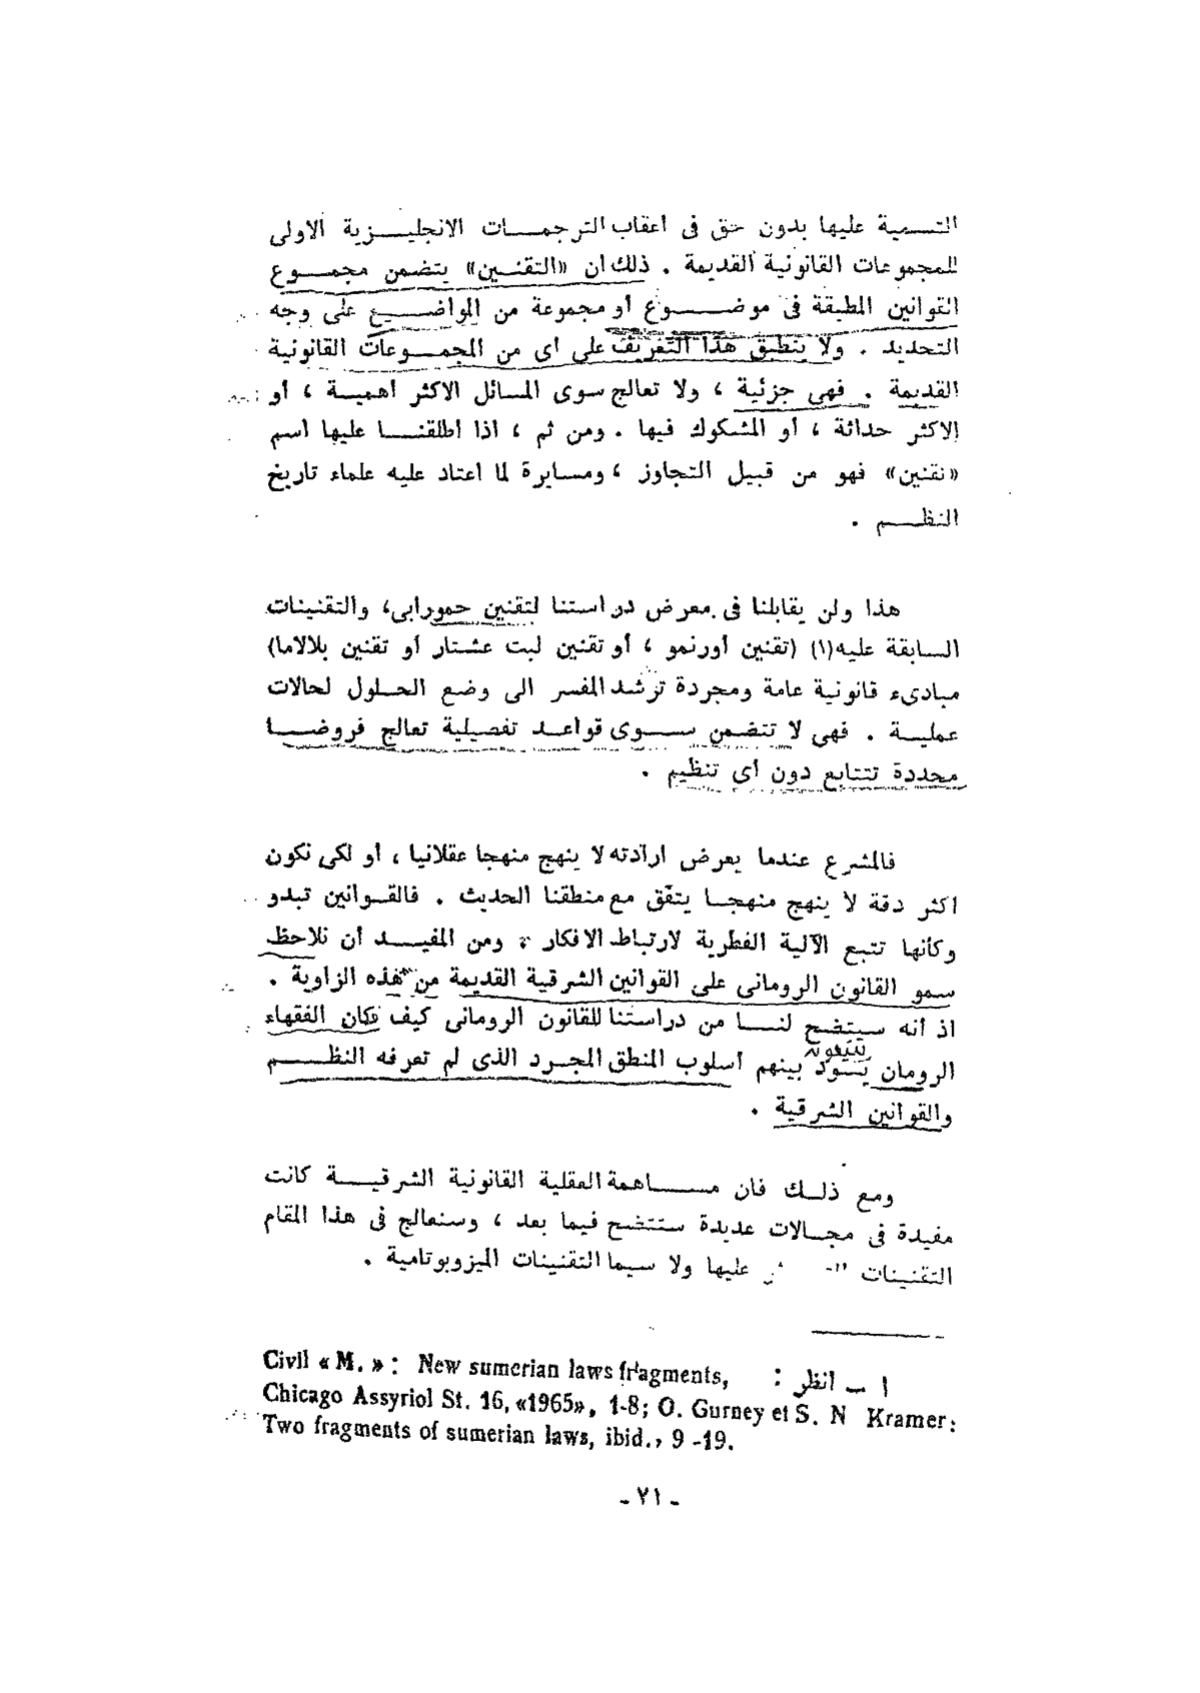 التسمية عليها بدون حق فى اعقاب الترجمات الانجليزية الاولى
للمجموعات القانونية القديمة . ذلك ان «التقنين» يتضمن مجموع
القوانين المطبقة فى موضوع أو مجموعة من المواضيع على وجه
التحديد . ولا ينطبق هذا التعريف على اى من المجموعات القانونية
القديمة . فهى جزئية ، ولا تعالج سوى المسائل الاكثر اهمية ، أو
الاكثر حداثة ، أو المشكوك فيها . ومن ثم ، اذا اطلقنا عليها اسم
«تقنين» فهو من قبيل التجاوز ، ومسايرة لما اعتاد عليه علماء تاريخ
النظم .
هذا ولن يقابلنا فى معرض دراستنا لتقنين حمورابى، والتقنينات
السابقة عليه(١) (تقنين أورنمو ، أو تقنين لبت عشتار أو تقنين بلالاما)
مبادىء قانونية عامة ومجردة ترشد المفسر الى وضع الحلول لحالات
عملية . فهى لا تتضمن سوى قواعد تفصيلية تعالج فروضا
محددة تتتابع دون أى تنظيم .
فالمشرع عندما يعرض ارادته لا ينهج منهجا عقلانيا ، أو لكى نكون
اكثر دقة لا ينهج منهجا يتفق مع منطقنا الحديث . فالقوانين تبدو
وكأنها تتبع الآلية الفطرية لارتباط الافكار ، ومن المفيد أن نلاحظ
سمو القانون الرومانى على القوانين الشرقية القديمة من هذه الزاوية .
اذ أنه سيتضح لنا من دراستنا للقانون الرومانى كيف كان الفقهاء
الرومان يسود بينهم أسلوب المنطق المجرد الذى لم تعرفه النظم
والقوانين الشرقية .
ومع ذلك فان مساهمة العقلية القانونية الشرقية كانت
مفيدة فى مجالات عديدة ستتضح فيما بعد ، وسنعالج فى هذا المقام
التقنينات عليها ولا سيما التقنينات الميزوبوتامية .
١ ــ انظر : Civil « M. » : New sumerian laws fragments,
Chicago Assyriol St. 16, «1965», 1-8; O. Gurney et S. N Kramer:
Two fragments of sumerian laws, ibid., 9 -19.
- ٢١ -